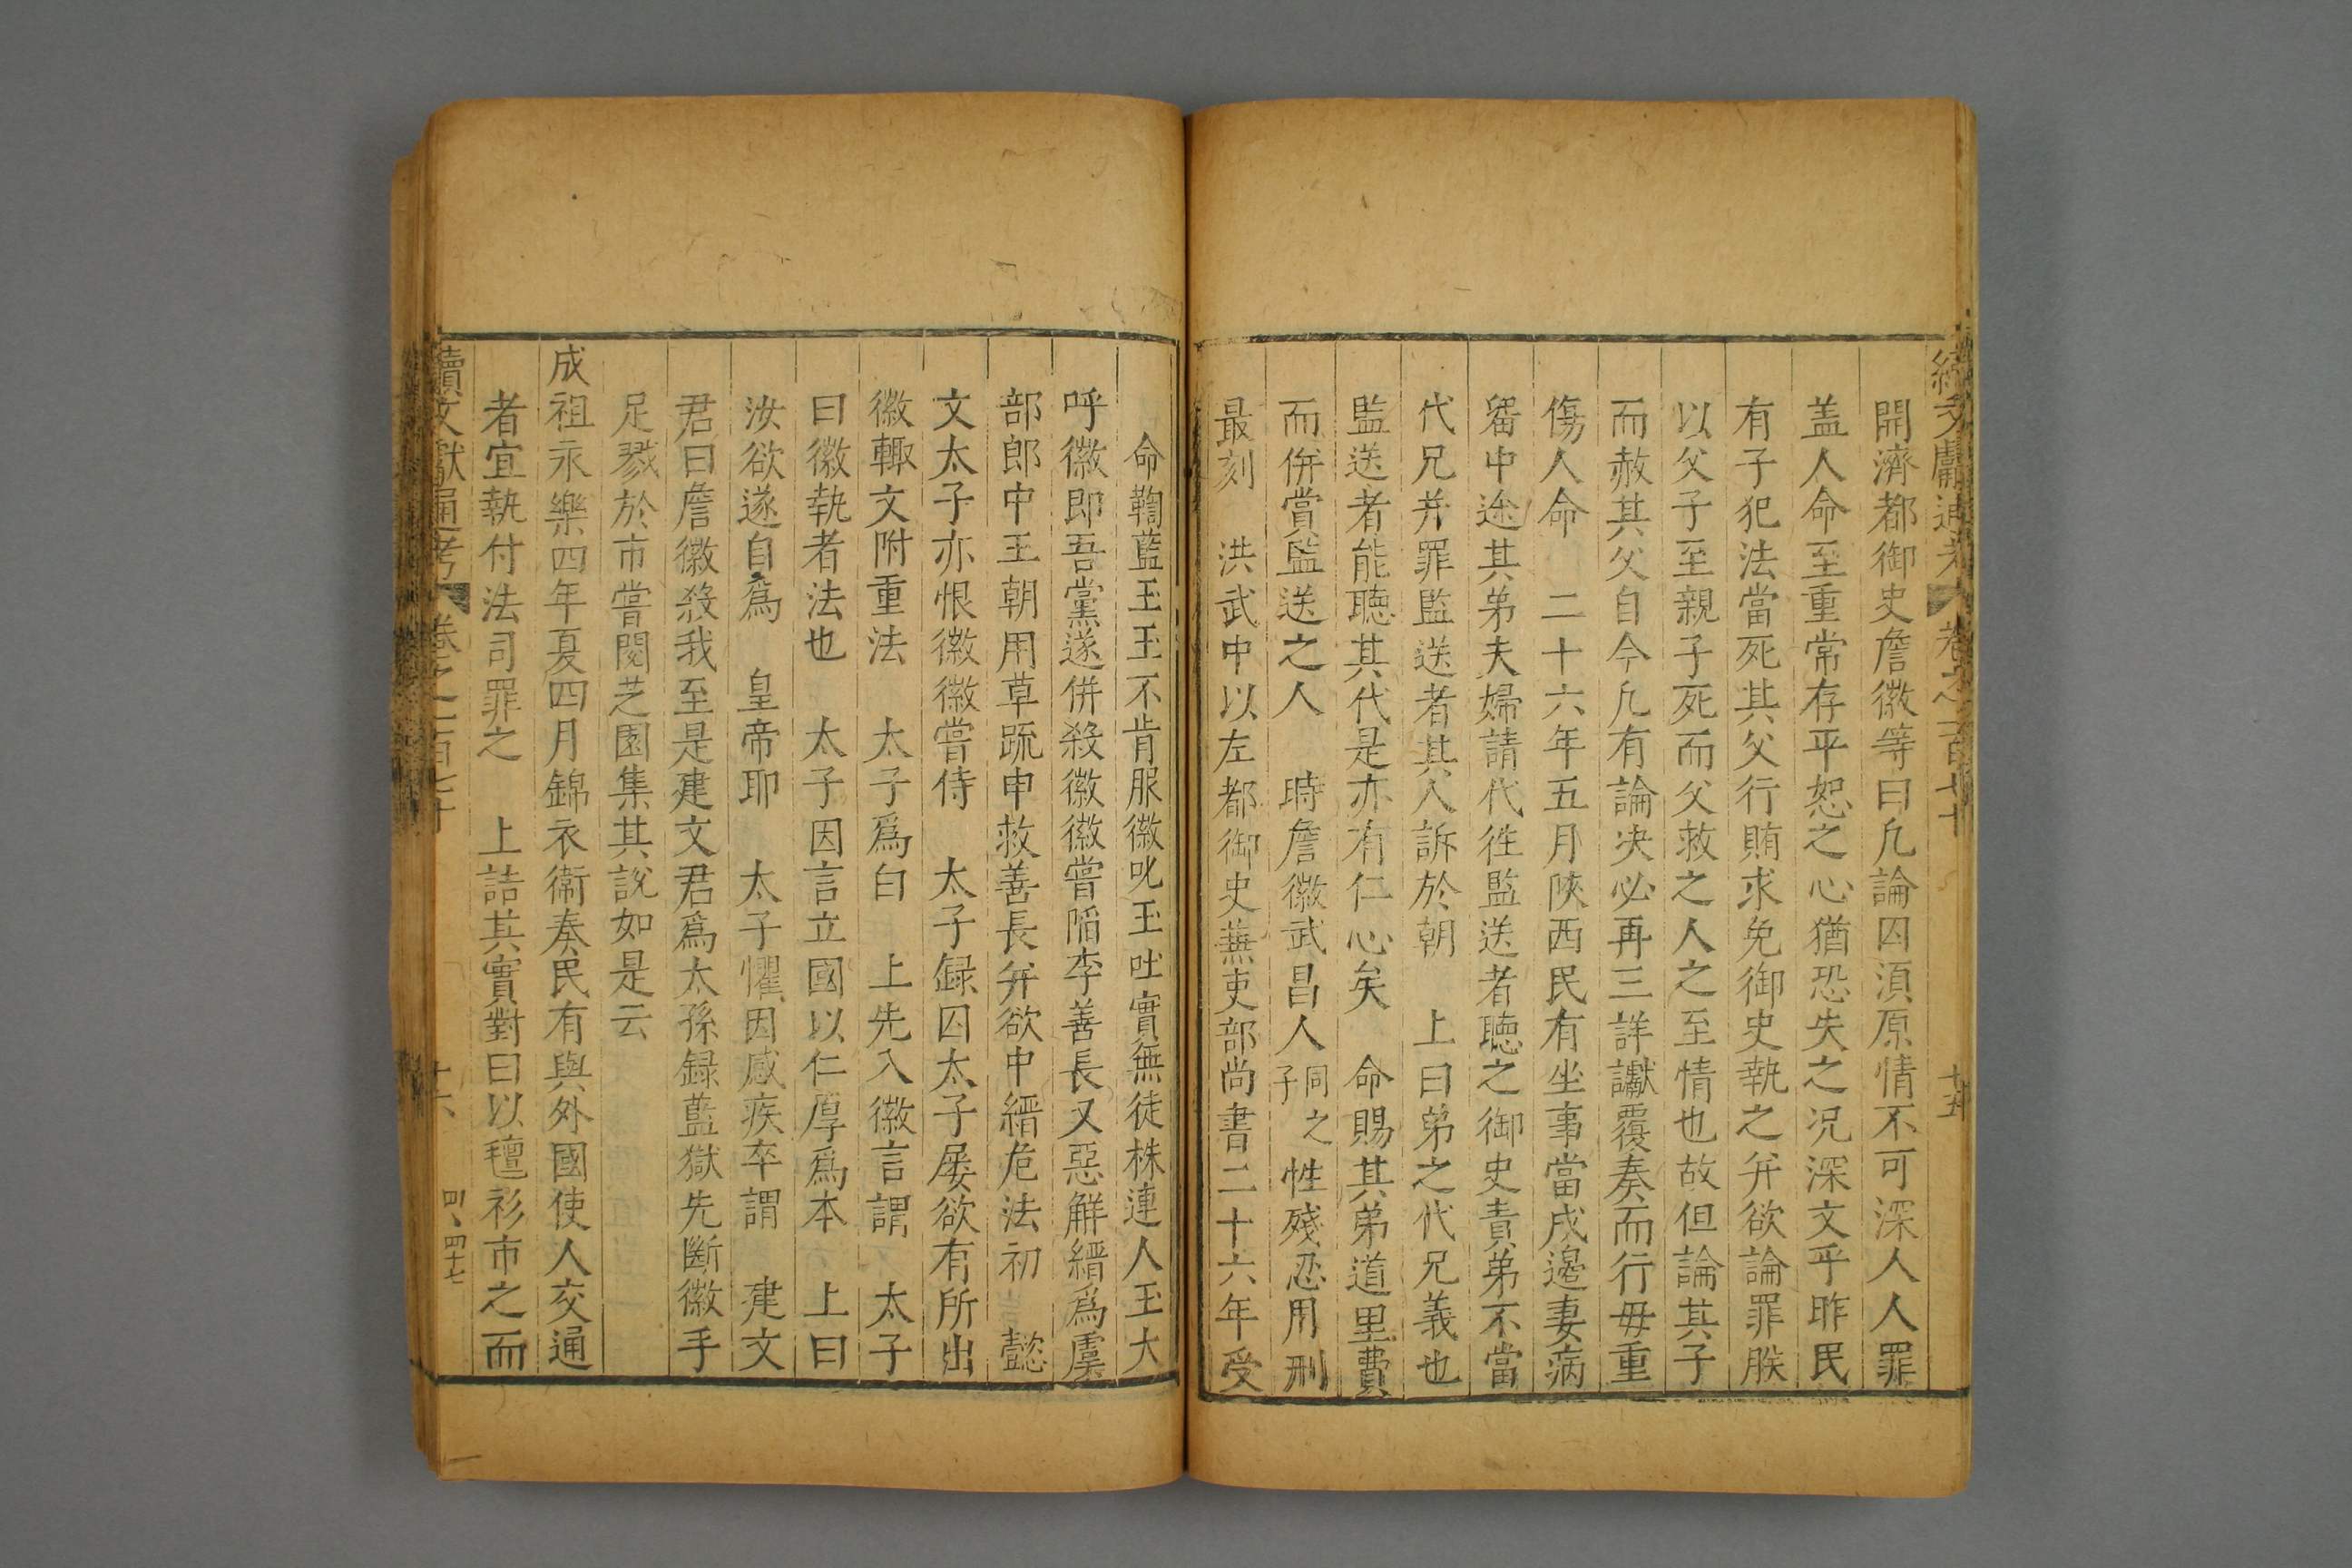 續文獻通考 卷之一百七十 十五
開濟都御史詹徽等曰凢論囚湏原情不可深人人罪
盖人命至重常存平恕之心猶恐失之况深文乎昨民
有子犯法當死其父行賄求免御史執之并欲論罪朕
以父子至親子死而父救之人之至情也故但論其子
而赦其父自今凢有論决必再三詳讞覆奏而行毋重
傷人命 二十六年五月陝西民有坐事當戍邊妻病
留中途其弟夫婦請代徃監送者聽之御史責弟不當
代兄并罪監送者其人訴於朝 上曰弟之代兄義也
監送者能聽其代是亦有仁心矣 命賜其弟道里費
而併賞監送之人 時詹徽武昌人同之子性殘忍用刑
最刻 洪武中以左都御史兼吏部尚書二十六年受
命鞫藍玉玉不肯服徽叱玉吐實無徒株連人玉大
呼徽即吾黨遂併殺徽徽嘗陷李善長又惡解縉爲虞
部郎中王朝用草䟽申救善長并欲中縉危法初 懿
文太子亦恨徽徽嘗侍 太子録囚太子屡欲有所出
徽輙文附重法 太子爲白 上先入徽言謂 太子
曰徽執者法也 太子因言立國以仁厚爲本 上曰
汝欲遂自爲 皇帝耶 太子懼因感疾卒謂 建文
君曰詹徽殺我至是建文君爲太孫録藍獄先斷徽手
足戮於市嘗閱芝園集其說如是云
成祖永樂四年夏四月錦衣衛奏民有與外國使人交通
者宜執付法司罪之 上詰其實對曰以氊衫市之而
續文獻通考 卷之一百七十 十六 四、四十七